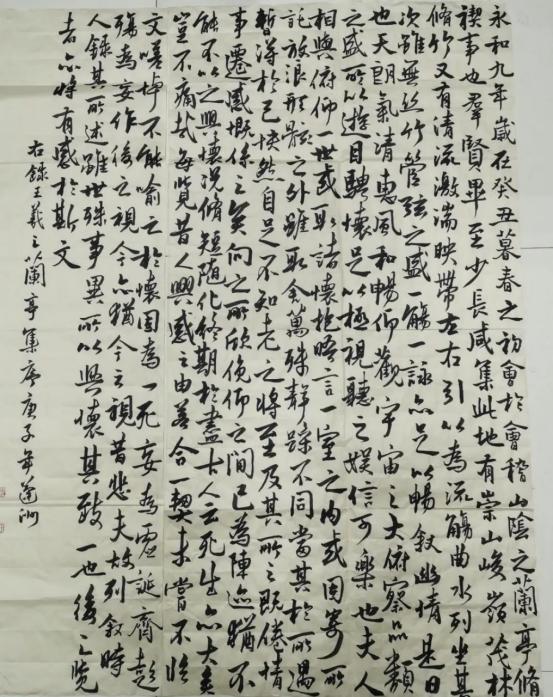 永和九年歲在癸丑暮春之初會於會稽山陰之蘭亭脩
禊事也羣賢畢至少長咸集此地有崇山峻嶺茂林
脩竹又有清流激湍映帶左右引以為流觴曲水列坐其
次雖無絲竹管弦之盛一觴一詠亦足以暢敘幽情是日
也天朗氣清惠風和暢仰觀宇宙之大俯察品類
之盛所以遊目騁懷足以極視聽之娛信可樂也夫人
相與俯仰一世或取諸懷抱晤言一室之内或因寄所
託放浪形骸之外雖取舍萬殊靜躁不同當其於所遇
暫得於己快然自足不知老之將至及其所之既倦情
事遷感慨係之矣向之所欣俛仰之間已為陳迹猶不
能不以之興懷況脩短隨化終期於盡古人云死生亦大矣
豈不痛哉每覽昔人興感之由若合一契未嘗不臨
文嗟悼不能喻之於懷固為一死妄為虛誕齊彭
殤為妄作後之視今亦猶今之視昔悲夫故列敘時
人錄其所述雖世殊事異所以興懷其致一也後之覽
者亦將有感於斯文
右錄王羲之蘭亭集序庚子年